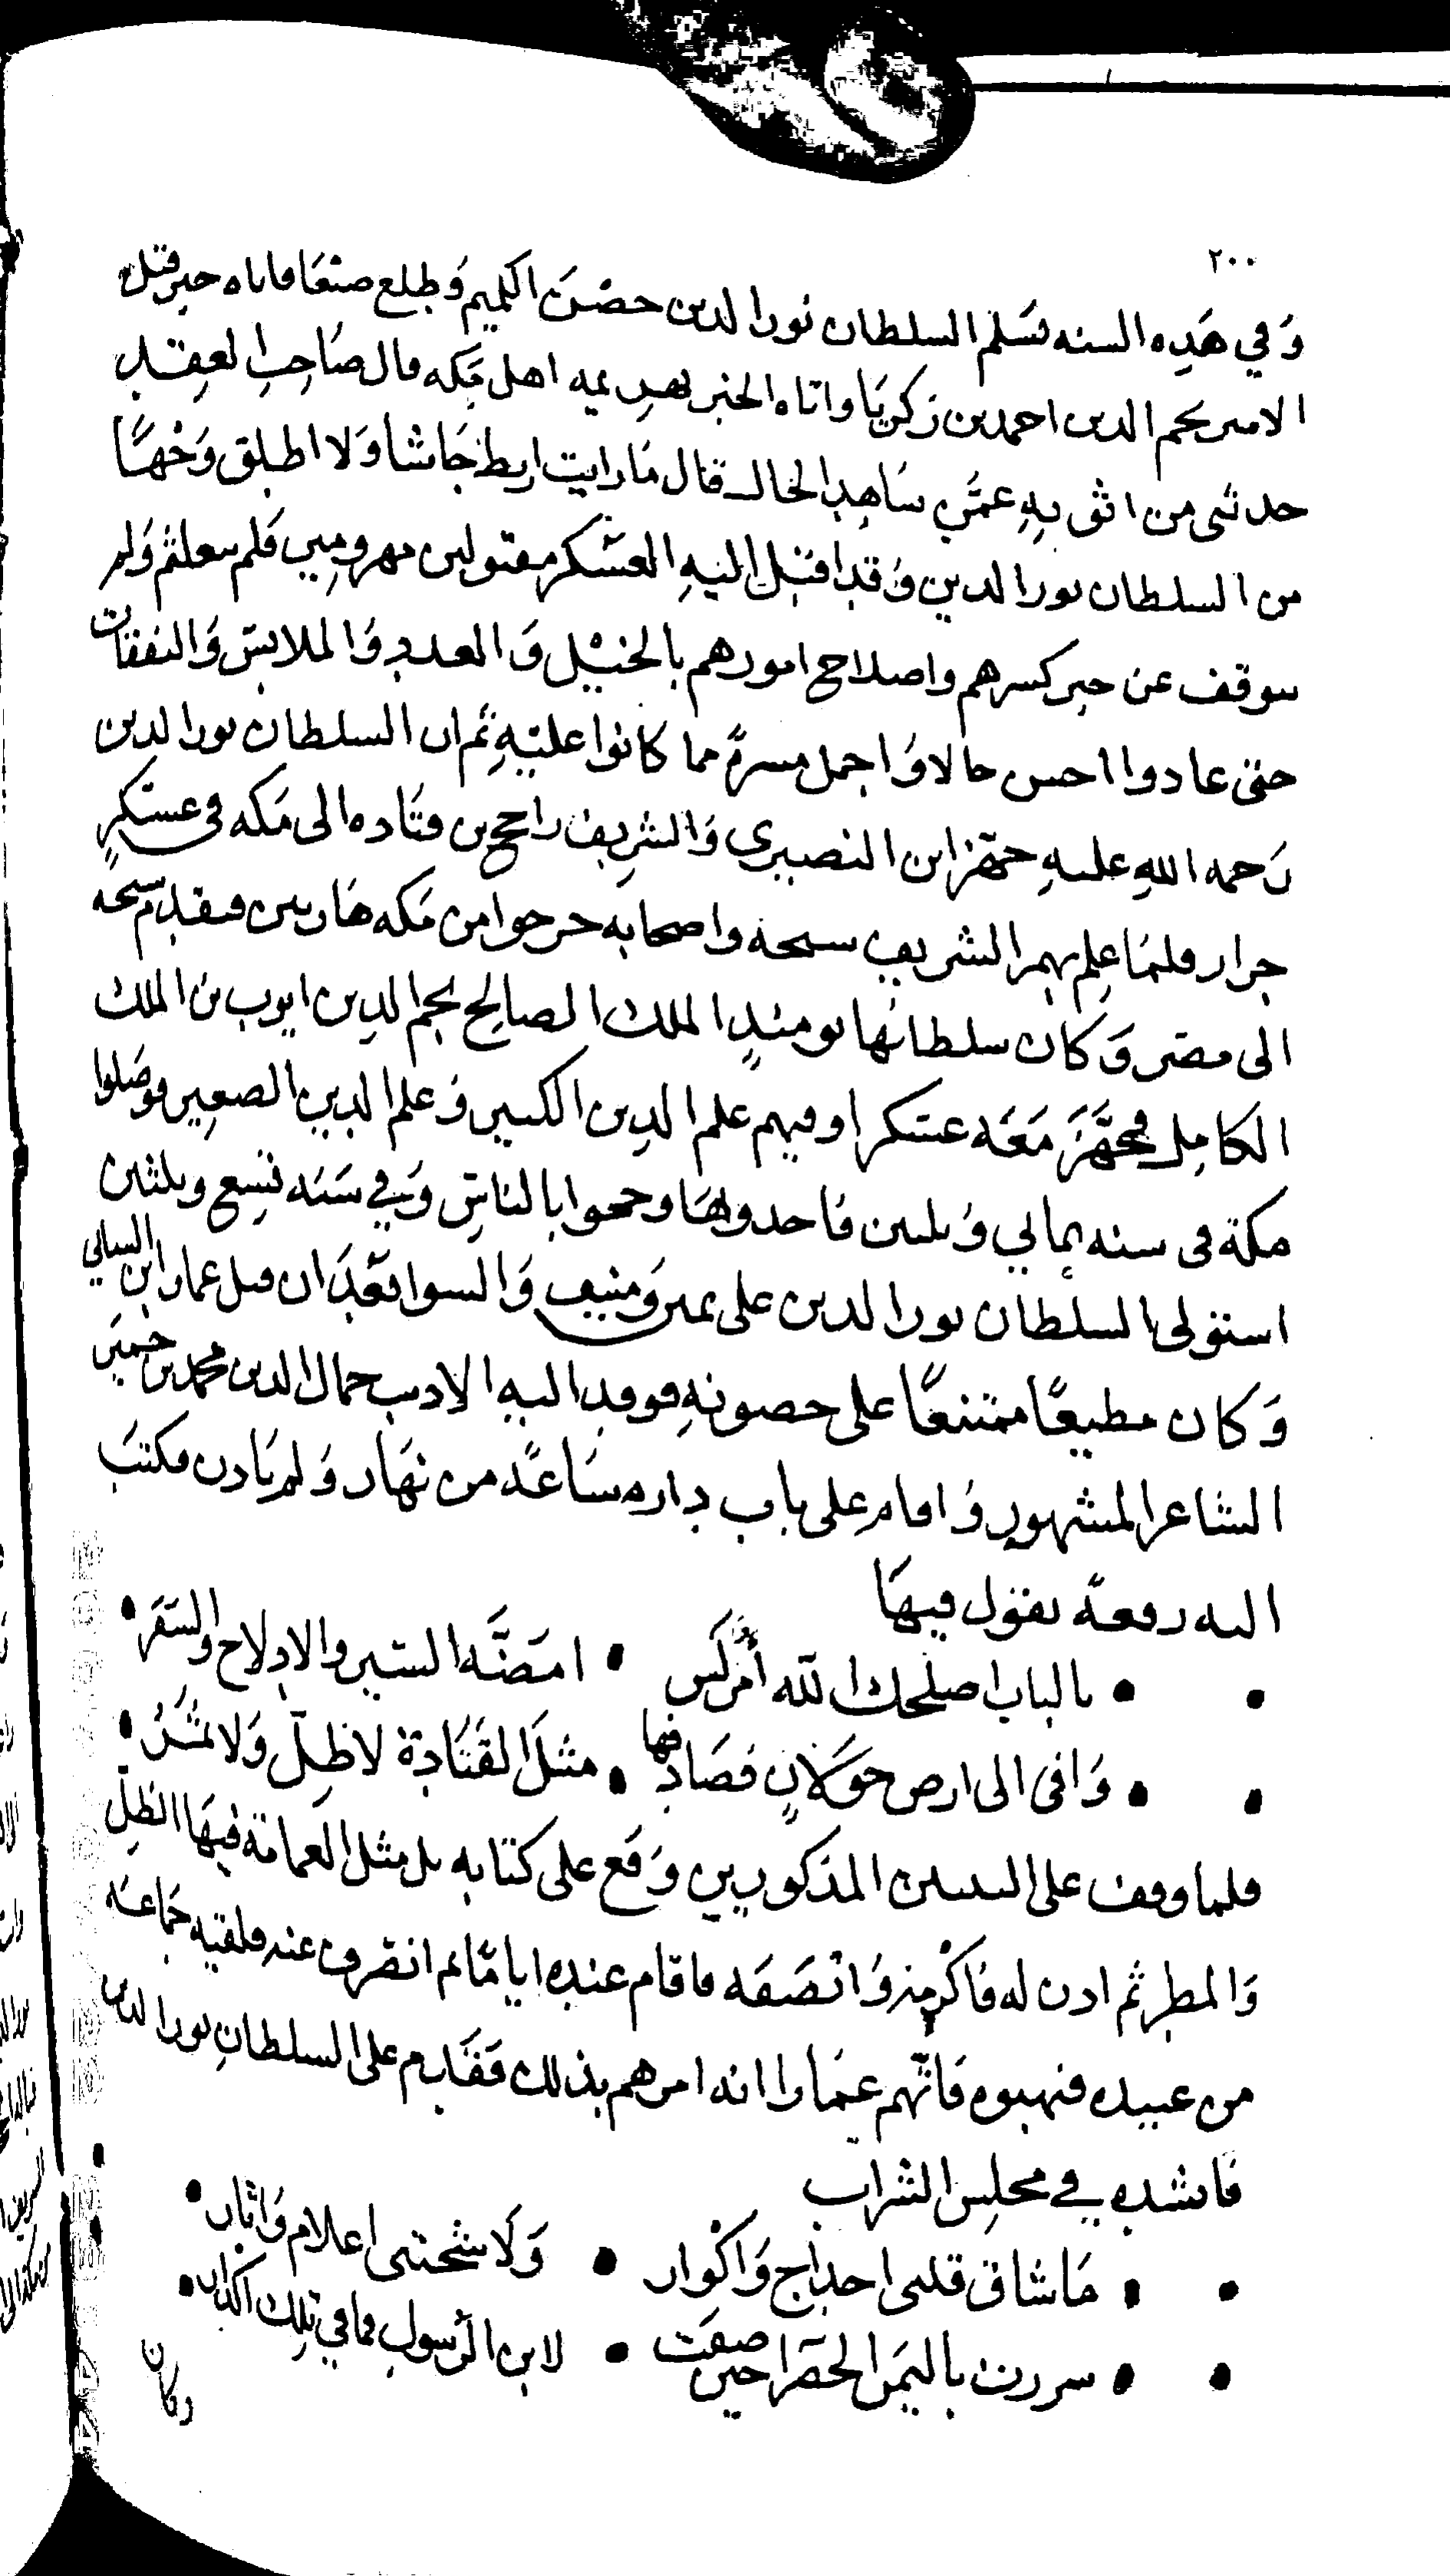 ٢٠٠
وَفي هَذِه السنه تسَلم السلطان نور الدين حصْن الكميم وَطلع صنعَا فاتاه خبر قتل
الامير نجم الدين احمد بن زكريَا واتاه الخبر بهزيمه اهل مَكه قال صَاحِب العِقد
حدثنى من اثق بِهِ عمَّن شاهِد الحال قال مَا رايت اربط جَاشا وَلا اطلق وَجْهًا
من السلطان نور الدين وَقد اقبَل اليهِ العسْكر مقتولين مهزومِين فلم يتعلثم وَلم
يتوقف عن جبر كسرهم واصلاح امورهم بالخيْل وَالعدد وَالملابسْ وَالنفقات
حتى عادوا احسن حالا وَاجمل مسرةً مما كانوا عليْهِ ثم ان السلطان نور الدين
رَحمه اللهِ عليهِ جهز ابن النصيرى وَالشرِيف راجح بن قتَاده الى مَكه فى عسْكرٍ
جرار فلمَا عِلم بهم الشريف شيحه واصحابه خرجوا من مَكه هَاربين فقدِم شيحه
الى مصْر وَكان سلطانُها يومئذٍ الملك الصالح نجم الدِين ايوب بن الملك
الكامِل فجهَّزَ مَعَه عسْكرا وفيهم علم الدِين الكبير وَعلم الدين الصغِير فوصَلوا
مكة فى سنه ثمانٍ وَثلثين فَاخدوهَا وحجوا بالناسِ وَفي سَنَه تسِع وثلثين
استولى السلطان نور الدين على يمين وَمنيف وَالسوا فقدَ ان قتل عمار ابن السبائي
وَكان مطيعًا ممتنعًا على حصونهِ فوفد اليهِ الاديب جمال الدين محمد بن حِمْيَر
الشاعر المشهور وَاقام على باب داره سَاعَة من نهَار وَلم يَاذن فكتبَ
اليه رقعة يقول فيهَا
• • بالباب اصلحك الله أمرؤ كَيس • امضَّه السَّير والادلاج والسَّفَر •
• • وَافى الى ارض خَوْلانٍ فصَادفها • مثلَ القَتَادة لا ظِلّ وَلا ثمَر •
فلما وقف على البيتين المذكورين وَقع على كتابه بل مثل الغمامة فيهَا الظلّ
وَالمطر ثم اذن له فاكْرمه وَانْصَفَه فاقام عنده ايامًا ثم انصَرف عنه فلقيه جَماعَه
من عبيده فنهبوه فَاتهم عمَارا انه امرهم بذلك فقَدِم على السلطانِ نور الدين
فانشده في محلِس الشراب
• • مَا شاق قلبى احداج وَاكْوار • وَلَا شجتنى اعلام وَاثار •
• • سررت باليمَن الخضرا حين صفَت • لابن الرسول فما في تلك اكدار •
وكان